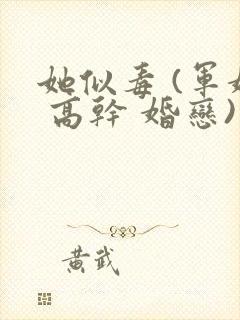 她似毒(軍婚
高幹 婚戀)
黃武